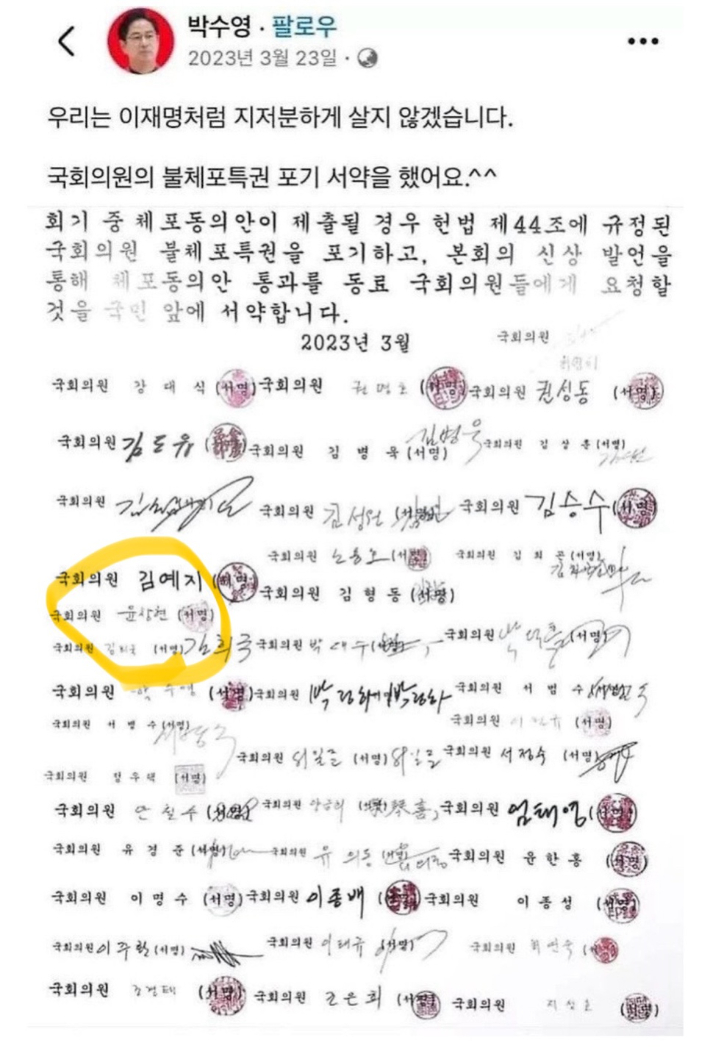 박수영 · 팔로우
2023년 3월 23일 ·
우리는 이재명처럼 지저분하게 살지 않겠습니다.
국회의원의 불체포특권 포기 서약을 했어요.^^
회기 중 체포동의안이 제출될 경우 헌법 제44조에 규정된
국회의원 불체포특권을 포기하고, 본회의 신상 발언을
통해 체포동의안 통과를 동료 국회의원들에게 요청할
것을 국민 앞에 서약합니다.
2023년 3월
국회의원
국회의원 강대식 (서명) 국회의원 권명호 (서명) 국회의원 권성동 (서명)
국회의원 김도읍 (서명) 국회의원 김병욱 (서명) 김병욱 국회의원 김상훈 (서명)
국회의원 국회의원 김성원 (서명) 국회의원 김승수 (서명)
국회의원 노용호 (서명) 국회의원 김희곤 (서명)
국회의원 김예지 (서명) 국회의원 김형동 (서명)
국회의원 윤상현 (서명)
국회의원 김희국 (서명) 김희국 국회의원 박대수 (서명) 국회의원 박덕흠 (서명)
국회의원 박수영 (서명) 국회의원 박정하 (서명) 박정하 국회의원 서범수 (서명) 서범수
국회의원 서병수 (서명) 국회의원 (서명)
국회의원 최일준 (서명) 국회의원 서정숙 (서명)
국회의원 정우택 (서명)
국회의원 안철수 (서명) 국회의원 (서명) 국회의원 엄태영 (서명)
국회의원 유경준 (서명) 국회의원 유의동 국회의원 윤한홍 (서명)
국회의원 이명수 (서명) 국회의원 이종배 (서명) 국회의원 이종성 (서명)
국회의원 이주환 (서명) 국회의원 이태규 (서명) 국회의원 최연숙 (서명)
국회의원 조경태 (서명) 국회의원 조은희 (서명) 국회의원 지성호 (서명)